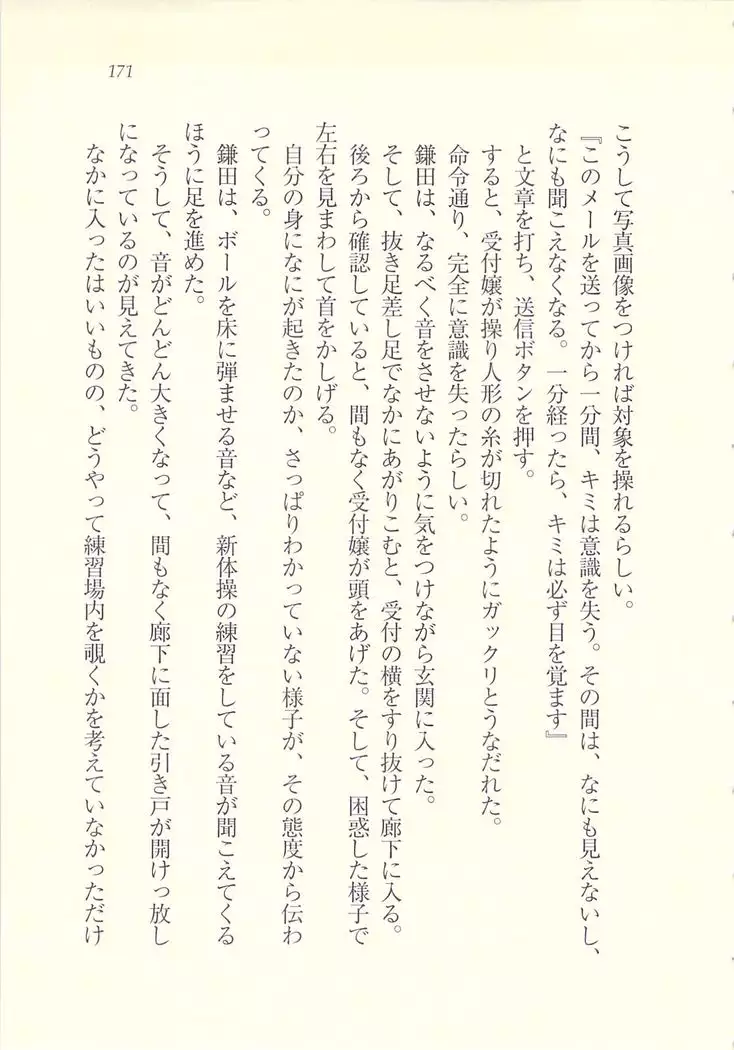 171
こうして写真画像をつければ対象を操れるらしい。
『このメールを送ってから一分間、キミは意識を失う。その間は、なにも見えないし、
なにも聞こえなくなる。一分経ったら、キミは必ず目を覚ます』
と文章を打ち、送信ボタンを押す。
すると、受付嬢が操り人形の糸が切れたようにガックリとうなだれた。
命令通り、完全に意識を失ったらしい。
鎌田は、なるべく音をさせないように気をつけながら玄関に入った。
そして、抜き足差し足でなかにあがりこむと、受付の横をすり抜けて廊下に入る。
後ろから確認していると、間もなく受付嬢が頭をあげた。そして、困惑した様子で
左右を見まわして首をかしげる。
自分の身になにが起きたのか、さっぱりわかっていない様子が、その態度から伝わ
ってくる。
鎌田は、ボールを床に弾ませる音など、新体操の練習をしている音が聞こえてくる
ほうに足を進めた。
そうして、音がどんどん大きくなって、間もなく廊下に面した引き戸が開けっ放し
になっているのが見えてきた。
なかに入ったはいいものの、どうやって練習場内を覗くかを考えていなかっただけ